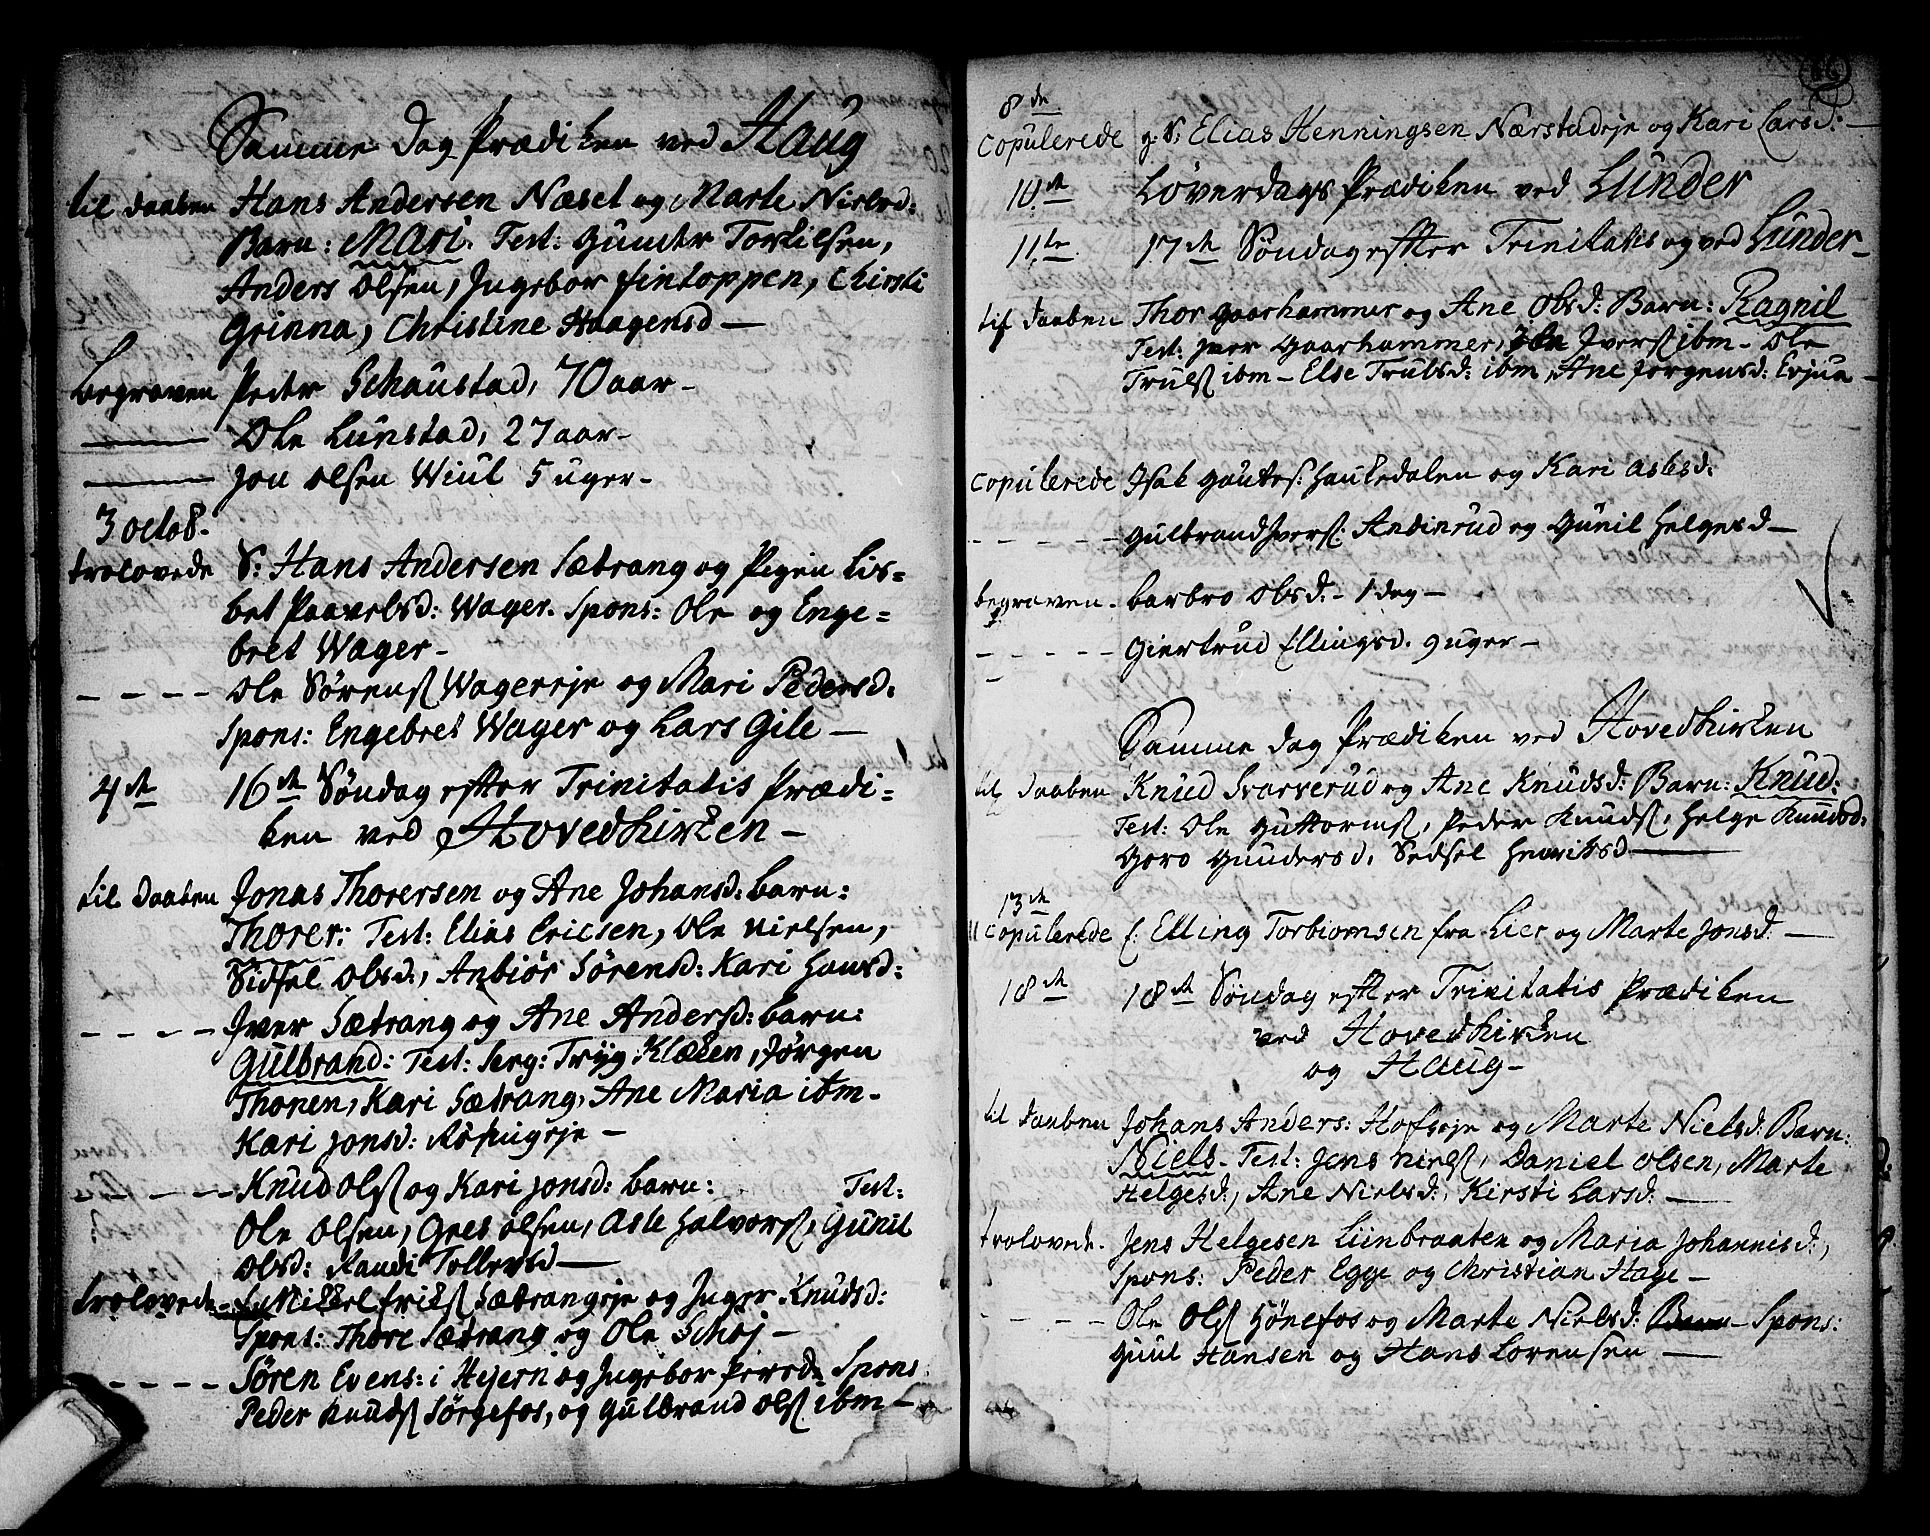 Samme Dag Prædiken ved Haug
til daaben Hans Andersen Næset og Marte Nielsd:
Barn: Mari. Test: Gunder Torkilsen,
Anders Olsen, Ingebor Fintoppen, Chirsti
Grinna, Christine Haagensd —
begraven Peder Schaustad, 70 aar –
——— Ole Lunstad, 27 aar –
——— Jon Olsen Wiul 5 uger –
3 octob.
trolovede S: Hans Andersen Sætrang og Pigen Lis=
bet Paavelsd: Wager. Spons: Ole og Enge=
bret Wager –
– – – – Ole Sörens Wagereje og Mari Pedersd:
Spons: Engebret Wager og Lars Gile —
4de 16de Söndag efter Trinitatis Prædi=
ken ved Hovedkirken –
til Daaben Jonas Thorersen og Ane Johansd: barn:
Thorer: Test: Elias Ericsen, Ole Nielsen,
Sidsel Olsd:, Anbiör Sörensd: Kari Hansd:
– – – – Iver Sætrang og Ane Andersd: barn:
Gulbrand: Test: Serg: Tryg Klækken, Jörgen
Thonen, Kari Sætrang, Ane Maria ibm –
Kari Jonsd:
– – – – Knud Ols og Kari Jonsd: barn: Test:
Ole Olsen, Gres Olsen, Asle Halvors, Gunil
Olsd: Randi Tollevsd —
trolovede – Mikkel Eriks Sætrangeje og Inger Knudsd:
Spons: Thore Sætrang og Ole Schoj –
– – – – Sören Evens: i Hejern og Ingebor Persd: Spons
Peder Knuds Sörgefos, og Gulbrand Ols ibm –
8de
Copulerede g: S: Elias Henningsen Nærstadeje og Kari Larsd: —
10de Löverdags Prædiken ved Lunder
11te 17de Söndag efter Trinitatis og ved Lunder –
til daaben Thor Gaarhammer og Ane Olsd: Barn: Ragnil
Test: Iver Gaarhammer, Ivers ibm – Ole
Truls ibm – Else Trulsd: ibm, Ane Jörgensd: Evjua –
Copulerede Isak Gautes: Haukedalen og Kari Aslesd:
– – – – – Gulbrand Ivers: Andinrud og Gunil Helgesd —
begraven. barbro Olsd: – 1 dag –
– – – – – Giertrud Ellingsd. 9 uger –
Samme dag Prædiken ved Hovedkirken
til daaben Knud Svarverud og Ane Knudsd: Barn: Knud:
Test: Ole Guttorms, Peder Knuds, Helge Knudsd:
Goro Gundersd, Sedsel Henriksd ———
13de
Copulerede f: Elling Torbiornsen fra Lier og Marte Jonsd: —
18de 18de Söndag efter Trinitatis Prædiken
ved Hovedkirken
og Haug –
til daaben Johans Anders: Hofseje og Marte Nielsd: Barn:
Niels – Test: Jens Niels, Daniel Olsen, Marte
Helgesd:, Ane Nielsd:, Kirsti Larsd: —
trolovede. Jens Helgesen Lunbraaten og Maria Johannisd:,
Spons: Peder Egge og Christian Hage –
– – – – Ole Ols Hönefos og Marte Nielsd: Barn – Spons:
Guul Hansen og Hans Lorensen —